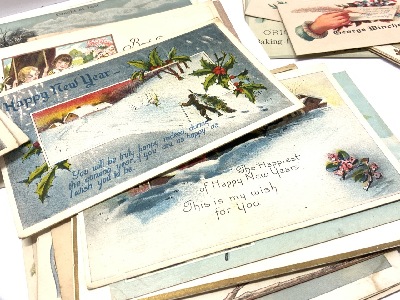 Happy New Year
You will be truly happy indeed, during
the coming year, if you are as happy as
I wish you to be.
The Happiest
of Happy New Years
This is my wish
for You
George Winche